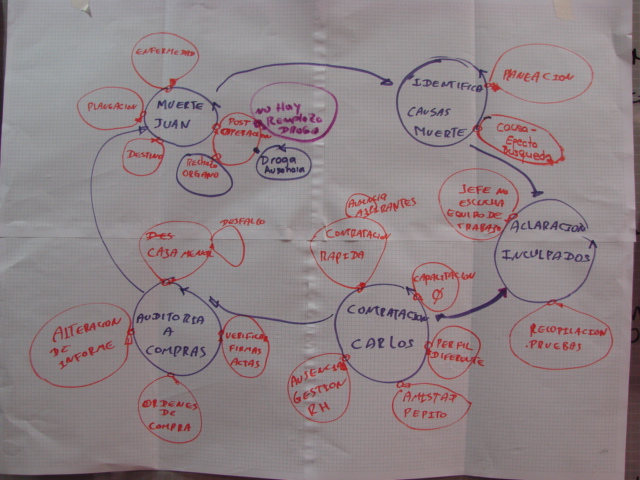 ENFERMEDAD
PLANEACION
MUERTE
JUAN
DESTINO
POST
OPERACION
RECHAZO
ORGANO
NO HAY
REMPLAZO
DROGA
Droga
Ausencia
IDENTIFICA
CAUSAS
MUERTE
PLANEACION
CAUSA-
EFECTO
BUSQUEDA
JEFE NO
ESCUCHA
EQUIPO DE
TRABAJO
ACLARACION
INCULPADOS
RECOPILACION
PRUEBAS
AUSENCIA
ASPIRANTES
CONTRATACION
RAPIDA
CAPACITACION
Ø
CONTRATACION
CARLOS
PERFIL
DIFERENTE
AMISTAD
PEPITO
AUSENCIA
GESTION
RH
DESFALCO
DES
CAJA MENOR
AUDITORIA
A
COMPRAS
VERIFICAR
FIRMAS
ACTAS
ALTERACION
DE
INFORME
ORDENES
DE
COMPRA